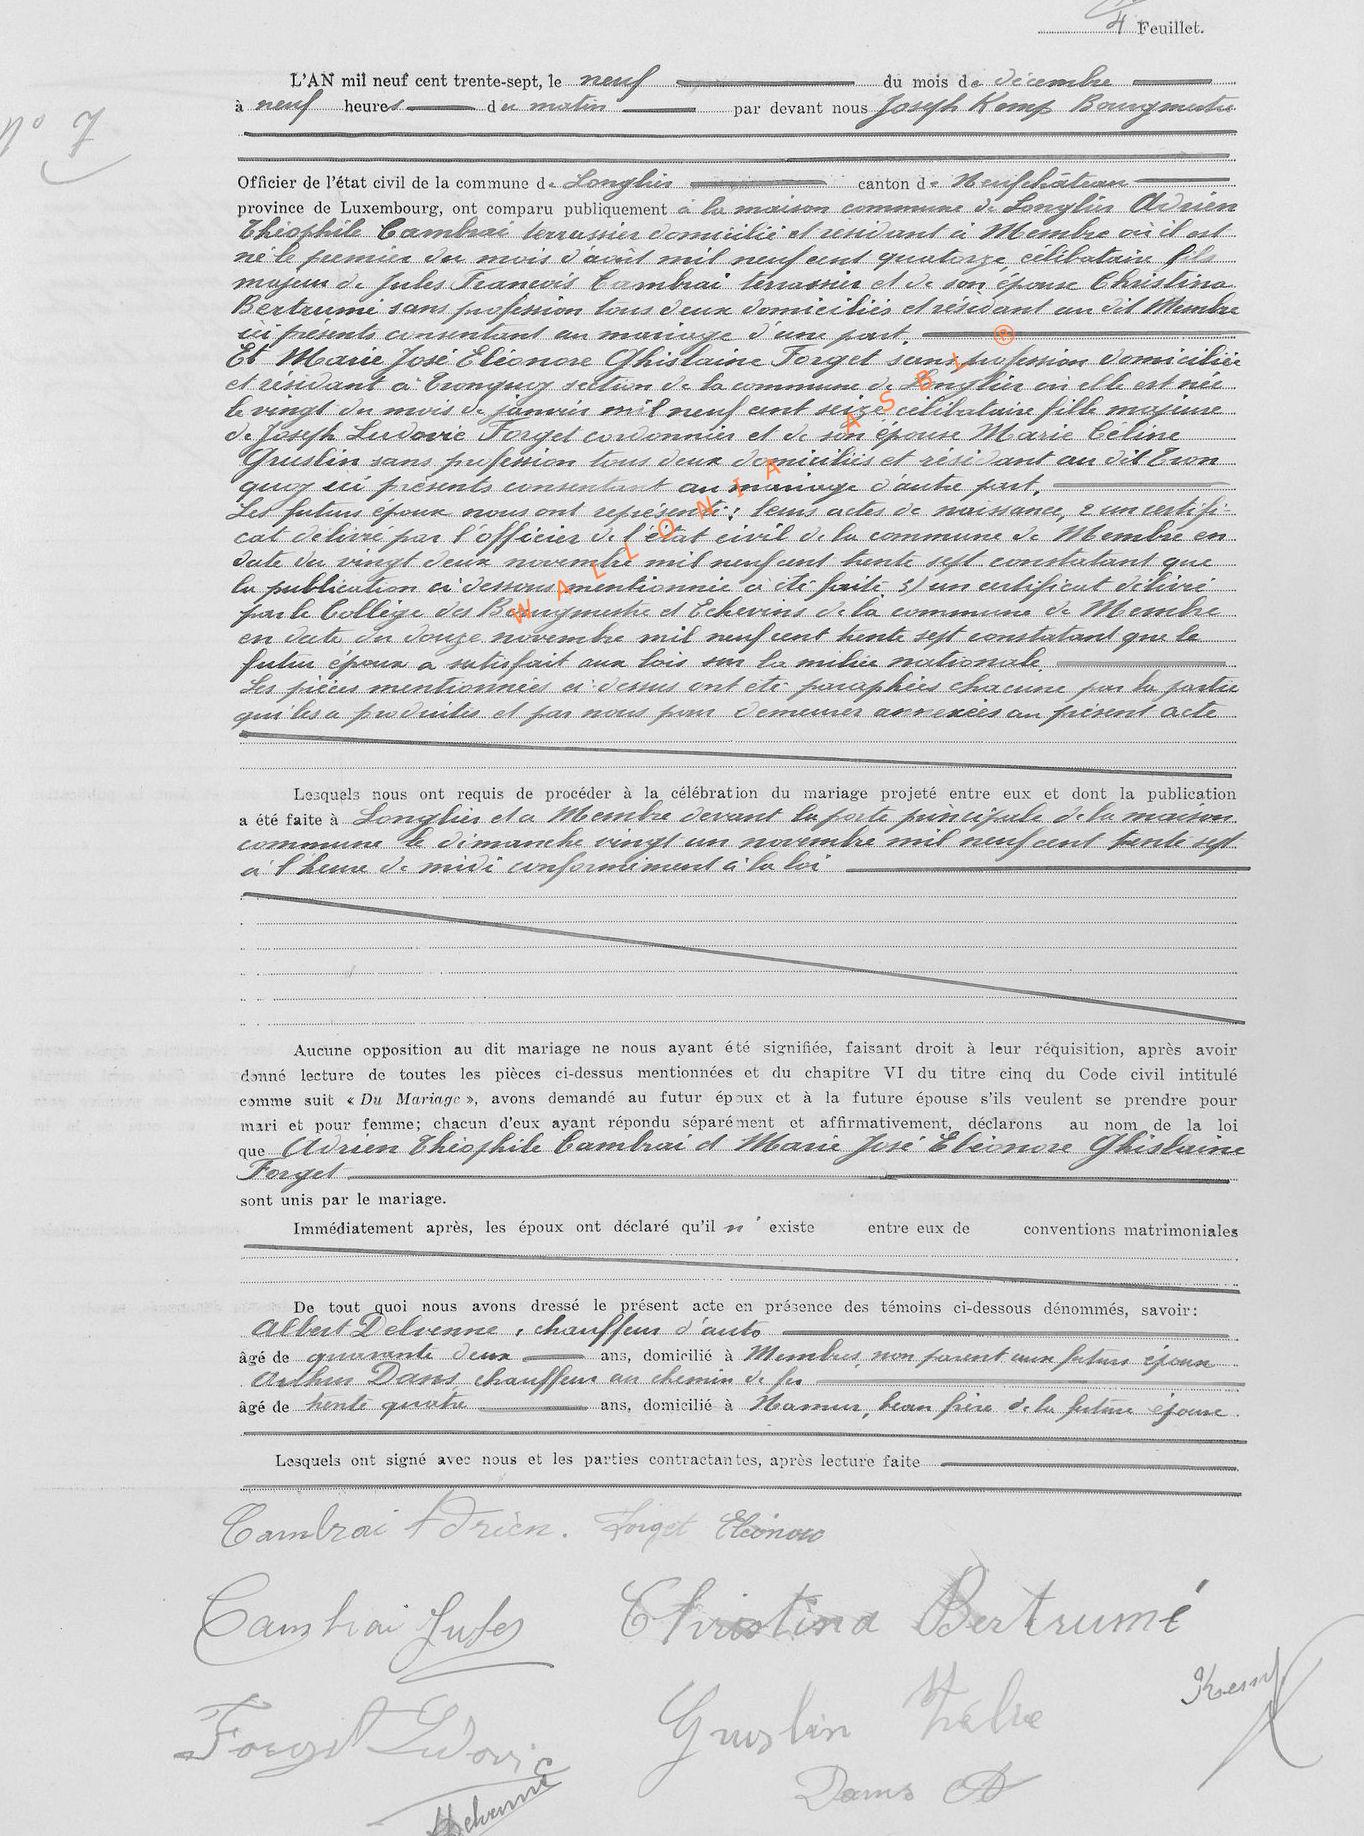 4 Feuillet.
L'AN mil neuf cent trente-sept, le neuf du mois de décembre
à neuf heures du matin par devant nous Joseph Kemp Bourgmestre
N° 7
Officier de l'état civil de la commune de Longlier canton de Neufchâteau
province de Luxembourg, ont comparu publiquement à la maison commune de Longlier Adrien
Théophile Cambrai terrassier domicilié et résidant à Membre où il est
né le premier du mois d'août mil neuf cent quatorze, célibataire fils
majeur de Jules François Cambrai terrassier et de son épouse Christina
Bertrumé sans profession tous deux domiciliés et résidant au dit Membre
ici présents consentant au mariage d'une part.
Et Marie José Eléonore Ghislaine Forget sans profession domiciliée
et résidant à Tronquoy section de la commune de Longlier où elle est née
le vingt du mois de janvier mil neuf cent seize célibataire fille majeure
de Joseph Ludovic Forget cordonnier et de son épouse Marie Céline
Gruslin sans profession tous deux domiciliés et résidant au dit Tron
quoy ici présents consentant au mariage d'autre part.
Les futurs époux nous ont représenté: leurs actes de naissance, 2 un certifi-
cat délivré par l'officier de l'état civil de la commune de Membre en
date du vingt deux novembre mil neuf cent trente sept constatant que
la publication ci dessous mentionnée a été faite 3) un certificat délivré
par le Collège des Bourgmestre et Echevins de la commune de Membre
en date du douze novembre mil neuf cent trente sept constatant que le
futur époux a satisfait aux lois sur la milice nationale.
Les pièces mentionnées ci-dessus ont été paraphées chacune par la partie
qui les a produites et par nous pour demeurer annexées au présent acte
WALLONIA ASBL ®
Lesquels nous ont requis de procéder à la célébration du mariage projeté entre eux et dont la publication
a été faite à Longlier et à Membre devant la porte principale de la maison
commune le dimanche vingt un novembre mil neuf cent trente sept
à l'heure de midi conformément à la loi
Aucune opposition au dit mariage ne nous ayant été signifiée, faisant droit à leur réquisition, après avoir
donné lecture de toutes les pièces ci-dessus mentionnées et du chapitre VI du titre cinq du Code civil intitulé
comme suit « Du Mariage », avons demandé au futur époux et à la future épouse s'ils veulent se prendre pour
mari et pour femme; chacun d'eux ayant répondu séparément et affirmativement, déclarons au nom de la loi
que Adrien Théophile Cambrai et Marie José Eléonore Ghislaine
Forget
sont unis par le mariage.
Immédiatement après, les époux ont déclaré qu'il n' existe entre eux de conventions matrimoniales
De tout quoi nous avons dressé le présent acte en présence des témoins ci-dessous dénommés, savoir:
Albert Delvenne, chauffeur d'auto
âgé de quarante deux ans, domicilié à Membre, non parent aux futurs époux
Arthur Dams chauffeur au chemin de fer
âgé de trente quatre ans, domicilié à Namur, beau frère de la future épouse.
Lesquels ont signé avec nous et les parties contractantes, après lecture faite
Cambrai Adrien. Forget Eléonore
Cambrai Jules Christina Bertrumé
Forget Ludovic Gruslin Kemp
Delvenne Dams A